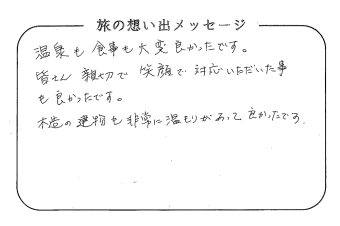 旅の想い出メッセージ
温泉も食事も大変良かったです。
皆さん親切で笑顔で対応いただいた事
も良かったです。
木造の建物も非常に温もりがあって良かったです.